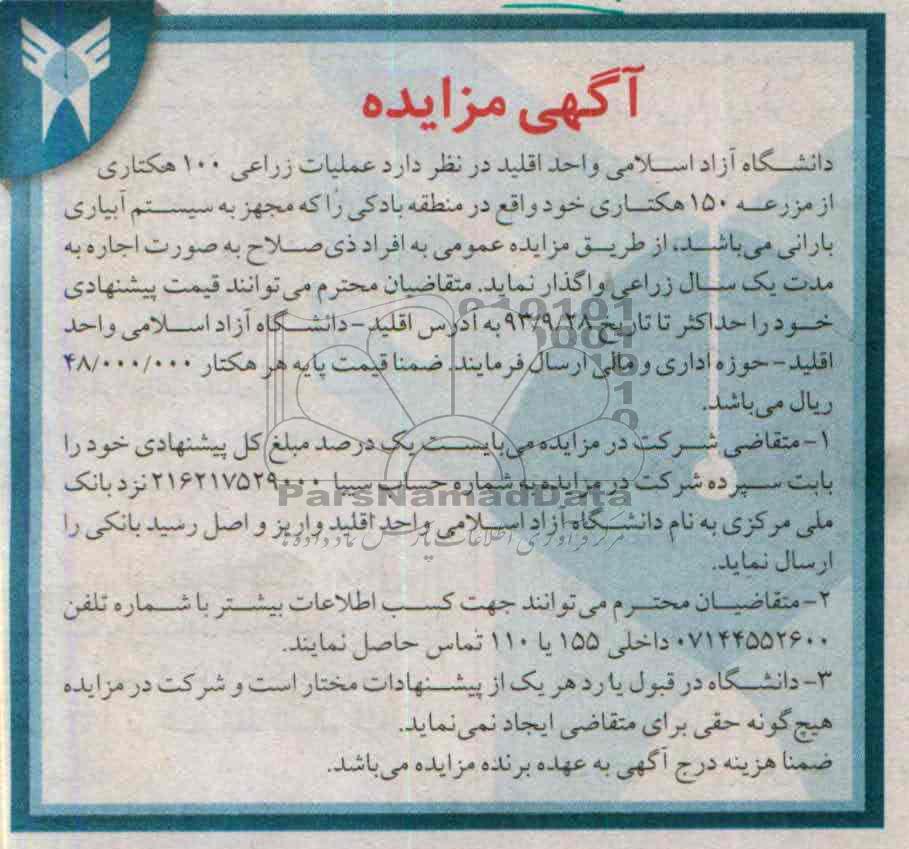 آگهی مزایده
دانشگاه آزاد اسلامی واحد اقلید در نظر دارد عملیات زراعی ۱۰۰ هکتاری
از مزرعه ۱۵۰ هکتاری خود واقع در منطقه بادکی را که مجهز به سیستم آبیاری
بارانی می‌باشد، از طریق مزایده عمومی به افراد ذی صلاح به صورت اجاره به
مدت یک سال زراعی واگذار نماید. متقاضیان محترم می توانند قیمت پیشنهادی
خود را حداکثر تا تاریخ ۹۳/۹/۲۸ به آدرس اقلید - دانشگاه آزاد اسلامی واحد
اقلید - حوزه اداری و مالی ارسال فرمایند. ضمنا قیمت پایه هر هکتار ۴۸/۰۰۰/۰۰۰
ریال می‌باشد.
۱- متقاضی شرکت در مزایده می‌بایست یک درصد مبلغ کل پیشنهادی خود را
بابت سپرده شرکت در مزایده به شماره حساب سیبا ۲۱۶۲۱۷۵۲۹۰۰۰ نزد بانک
ParsNamadData
ملی مرکزی به نام دانشگاه آزاد اسلامی واحد اقلید واریز و اصل رسید بانکی را
مرکز فرآوری اطلاعات پارس نماد داده ها
ارسال نماید.
۲- متقاضیان محترم می توانند جهت کسب اطلاعات بیشتر با شماره تلفن
۰۷۱۴۴۵۵۲۶۰۰ داخلی ۱۵۵ یا ۱۱۰ تماس حاصل نمایند.
۳- دانشگاه در قبول یا رد هر یک از پیشنهادات مختار است و شرکت در مزایده
هیچ گونه حقی برای متقاضی ایجاد نمی‌نماید.
ضمنا هزینه درج آگهی به عهده برنده مزایده می‌باشد.